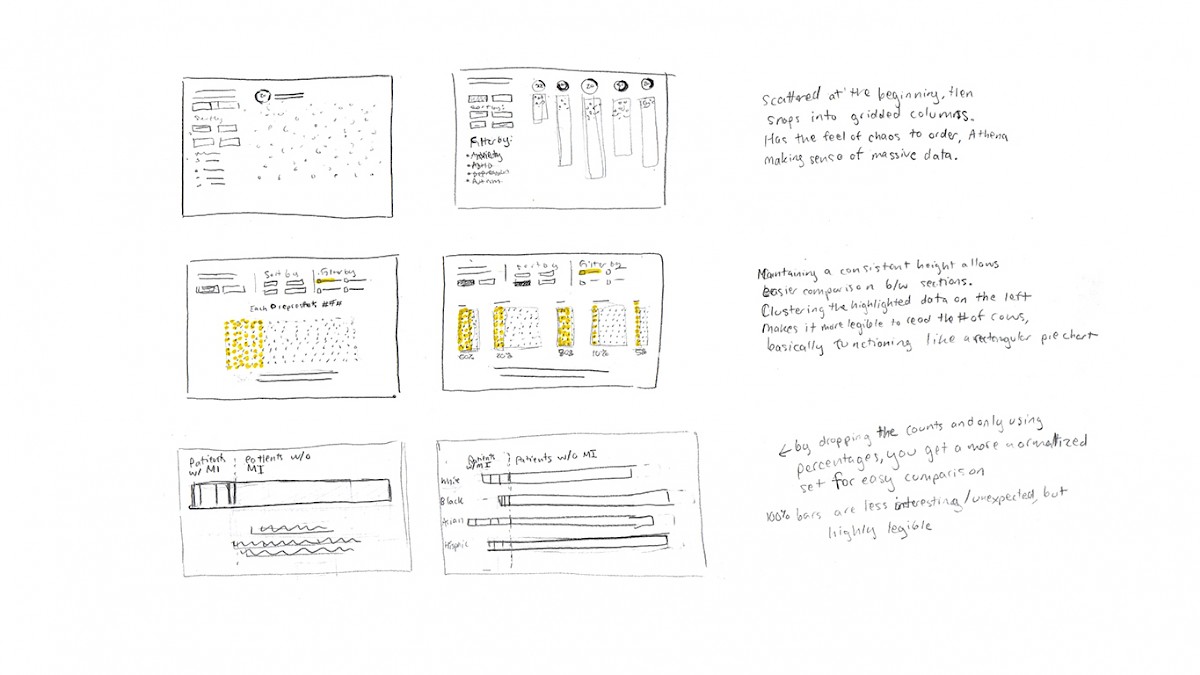 Sort by
Sort by:
Filter by:
• Anxiety
• Autism
scattered at the beginning, then
snaps into gridded columns.
Has the feel of chaos to order, Athena
making sense of massive data.
Sort by
Filter by
Each O represents ###
Sort by
Filter by
60%
20%
80%
10%
5%
Maintaining a consistent height allows
easier comparison b/w sections.
Clustering the highlighted data on the left
makes it more legible to read the # of cows,
basically functioning like a rectangular pie chart
Patients
w/ MI
Patients w/o
MI
Patients
w/ MI
Patients w/o MI
White
Black
Asian
Hispanic
← by dropping the counts and only using
percentages, you get a more normalized
set for easy comparison
100% bars are less interesting/unexpected, but
highly legible